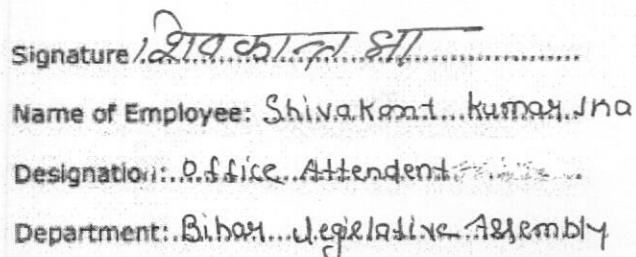 Signature शिवकान्त झा
Name of Employee: Shivakant kumar Jha
Designation: Office Attendent
Department: Bihar Legislative Assembly